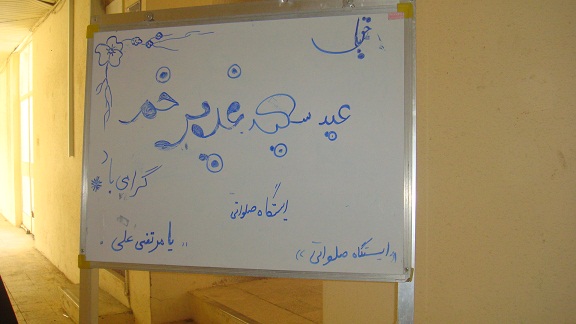 عید سعید غدیر خم
گرامی باد
ایستگاه صلواتی
یا مرتضی علی
((ایستگاه صلواتی))